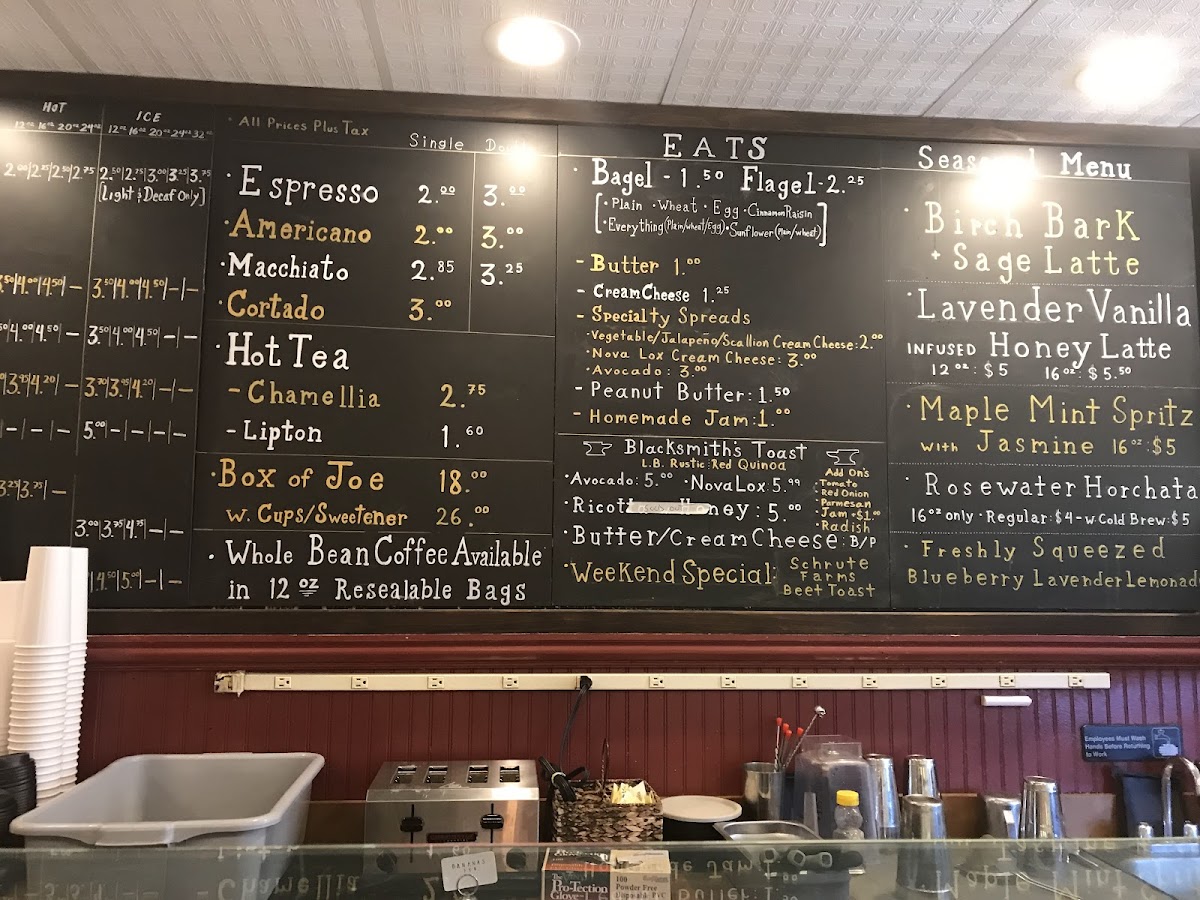 HOT
12oz 16oz 20oz 24oz
ICE
12oz 16oz 20oz 24oz 32oz
2.00|2.25|2.50|2.75
2.50|2.75|3.00|3.25|3.75
[Light & Decaf Only]
4.00|4.50|–
3.50|4.00|4.50|–|–
4.00|4.50|–
3.50|4.00|4.50|–|–
3.95|4.20|–
3.70|3.95|4.20|–|–
–|–|–
5.00–|–|–|–
3.25|3.75|–
3.00|3.75|4.75|–|–
4.50|5.00|–|–
· All Prices Plus Tax
Single Double
· Espresso 2.00 3.00
· Americano 2.00 3.00
· Macchiato 2.85 3.25
· Cortado 3.00
· Hot Tea
– Chamellia 2.75
– Lipton 1.60
· Box of Joe 18.00
w. Cups/Sweetener 26.00
· Whole Bean Coffee Available
in 12 oz Resealable Bags
EATS
· Bagel - 1.50 Flagel - 2.25
[· Plain · Wheat · Egg · Cinnamon Raisin
· Everything (Plain/wheat/Egg) · Sunflower (Plain/wheat)]
- Butter 1.00
- Cream Cheese 1.25
- Specialty Spreads
· Vegetable/Jalapeño/Scallion Cream Cheese: 2.00
· Nova Lox Cream Cheese: 3.00
· Avocado: 3.00
- Peanut Butter: 1.50
- Homemade Jam: 1.00
Blacksmith's Toast
L.B. Rustic: Red Quinoa
· Avocado: 5.00 · Nova Lox: 5.99
· Ricotta Honey: 5.00
· Butter/Cream Cheese: B/P
Add On's
· Tomato
· Red Onion
· Parmesan
· Jam ·$1.00
· Radish
· Weekend Special:
Schrute
Farms
Beet Toast
Seasonal Menu
· Birch Bark
+ Sage Latte
· Lavender Vanilla
INFUSED Honey Latte
12oz: $5 16oz: $5.50
· Maple Mint Spritz
with Jasmine 16oz: $5
· Rosewater Horchata
16oz only · Regular: $4 - w Cold Brew: $5
· Freshly Squeezed
Blueberry Lavender Lemonad
Employees Must Wash
Hands Before Returning
to Work
The
Pro-Tection
Glove-1
100
Powder Free